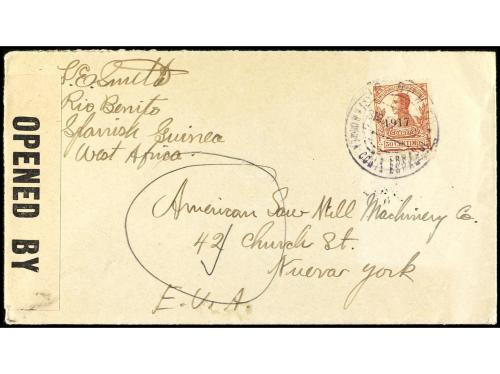 S.E. Smith
Rio Benito
Spanish Guinea
West Africa.
OPENED BY
1917
American Saw Mill Machinery Co.
42 Church St.
Nueva York
E.U.A.